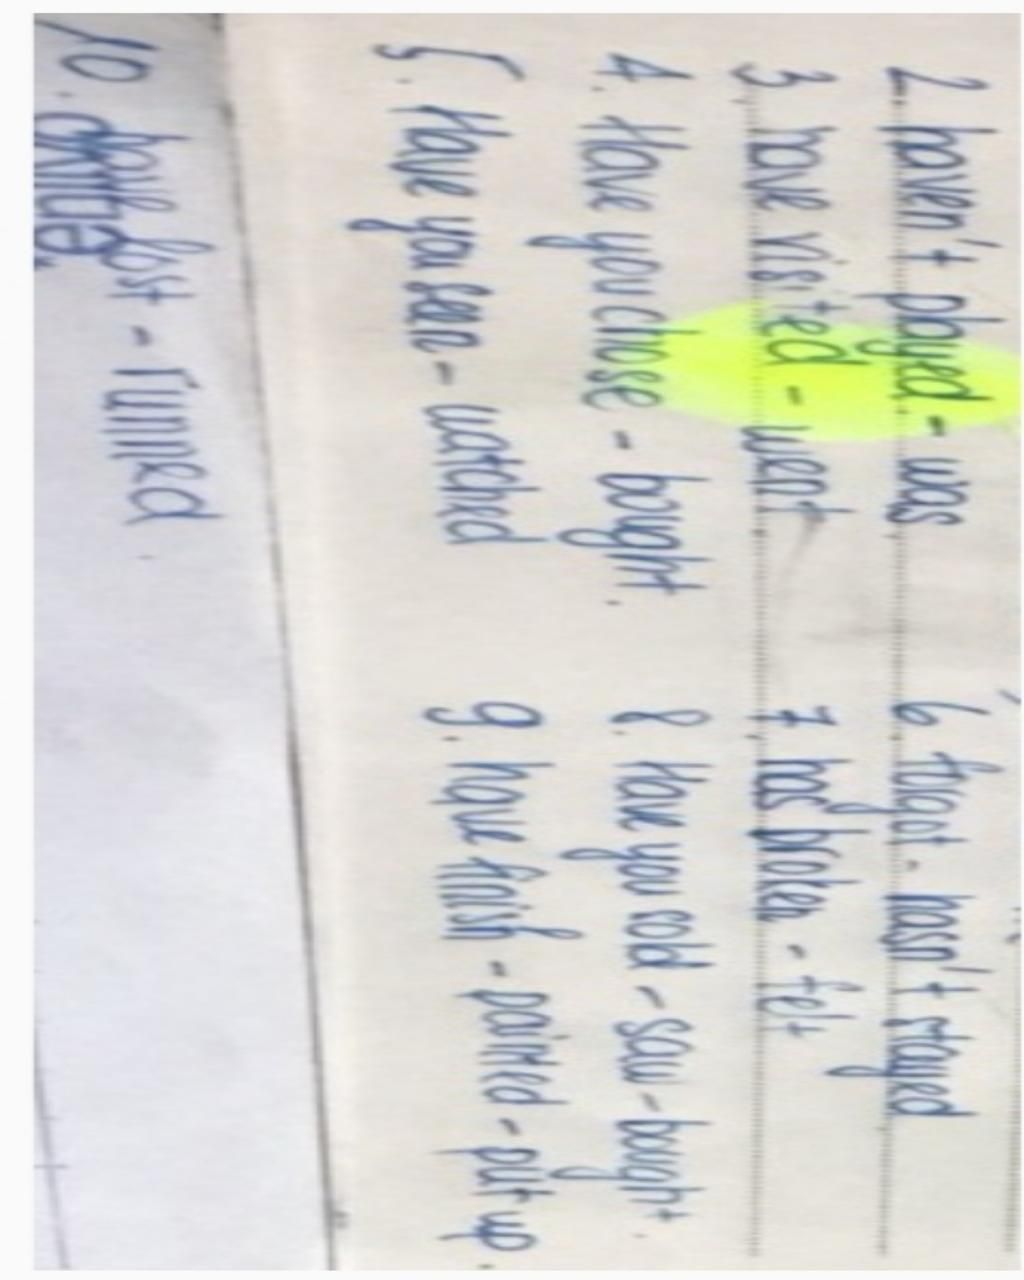 2. haven't played - was
3. have visited - went
4. Have you chose - bought.
5. Have you seen - watched
6. forgot - hasn't stayed
7. has broken - felt
8. Have you sold - saw - bought.
9. have finish - painted - put up.
10. have lost - runned.